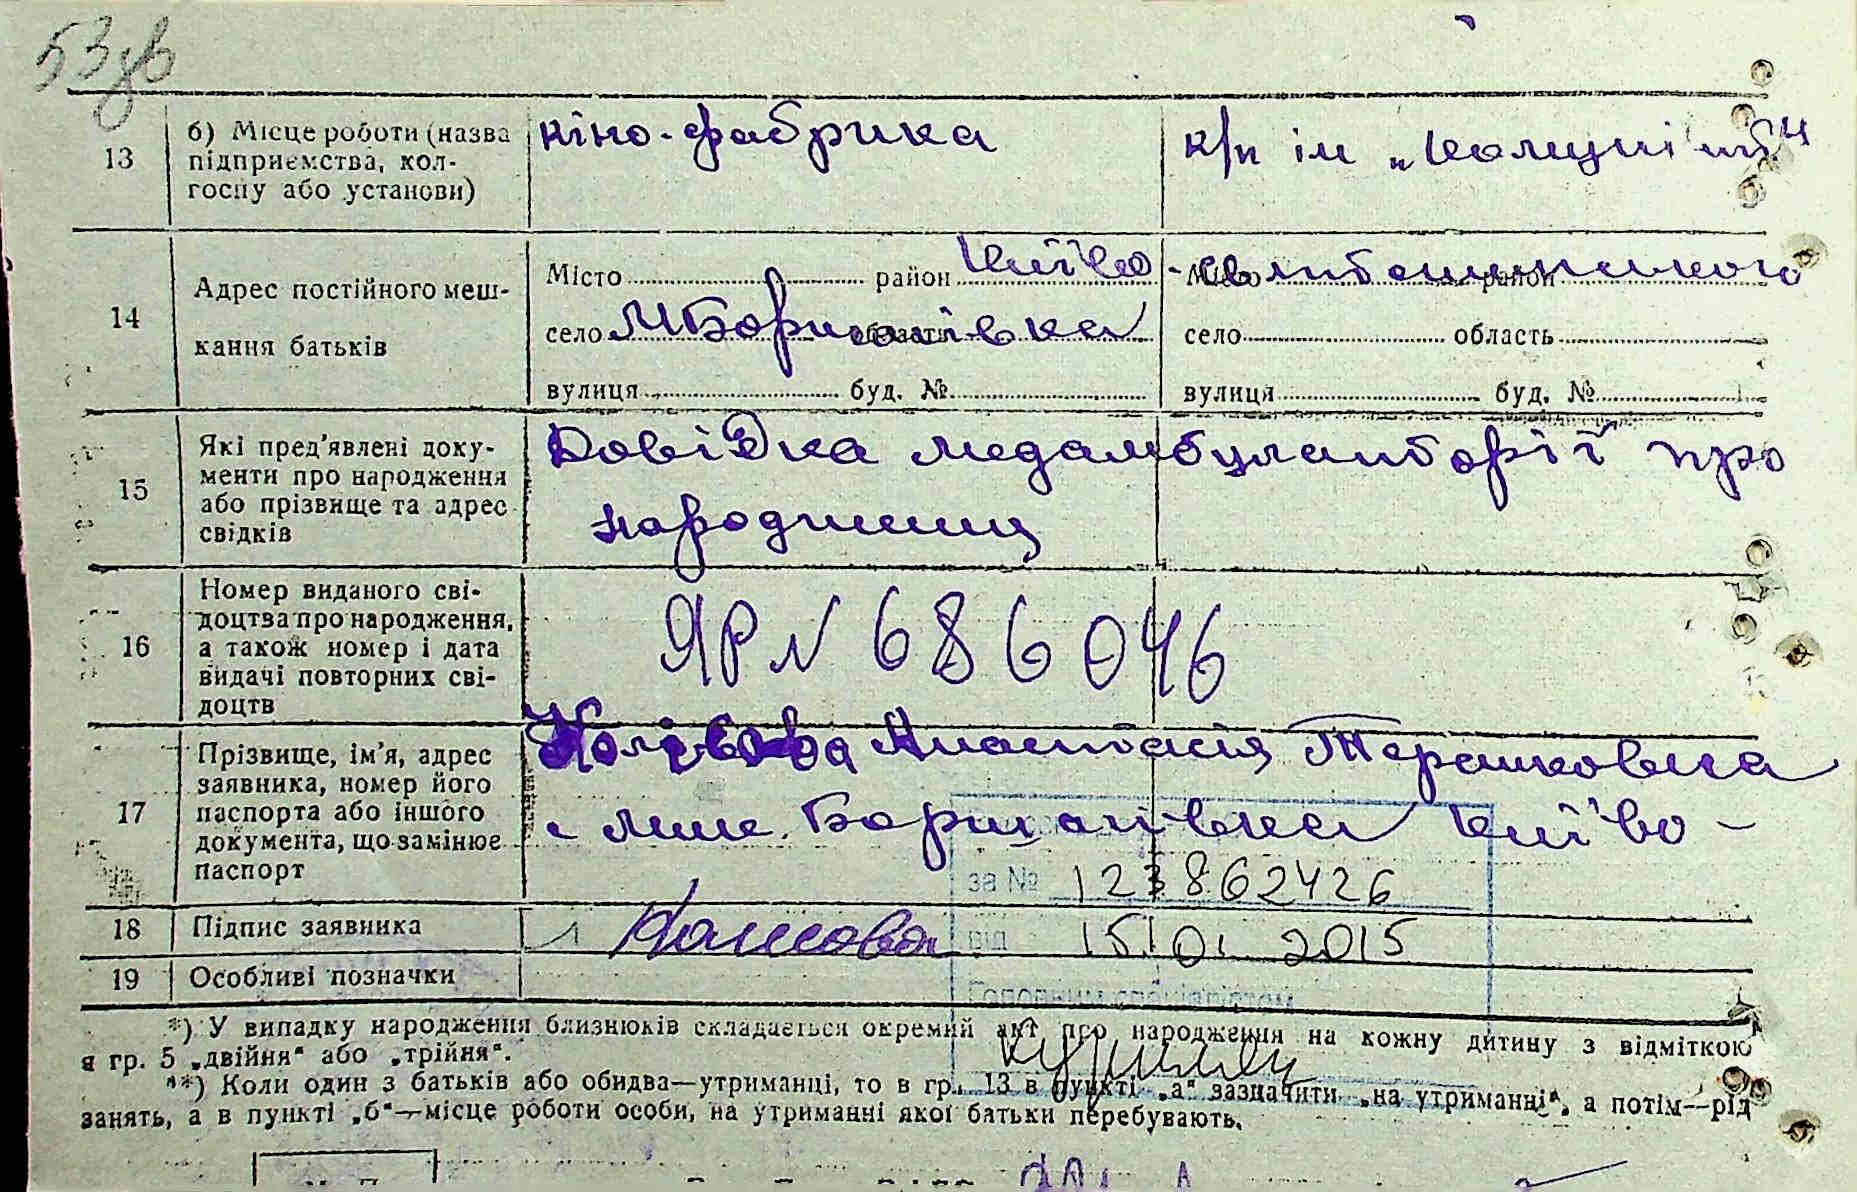 53зв
13
б) Місце роботи (назва
підприємства, кол-
госпу або установи)
кіно-фабрика
к/п ім
14
Адрес постійного меш-
кання батьків
Місто район Київо-святошинського
село М Борщагівка область
вулиця буд. №
Місто район
село область
вулиця буд. №
15
Які пред'явлені доку-
менти про народження
або прізвище та адрес
свідків
Довідка медамбулаторії про
народження
16
Номер виданого сві-
доцтва про народження,
а також номер і дата
видачі повторних сві-
доцтв
ЯР N 686046
17
Прізвище, ім'я, адрес
заявника, номер його
паспорта або іншого
документа, що замінює
паспорт
Анастасія
с Мик. Борщагівка Київо-
за № 123862426
18
Підпис заявника
від 15.01.2015
19
Особливі позначки
Головним спеціалістом
*) У випадку народження близнюків складається окремий акт про народження на кожну дитину з відміткою
в гр. 5 „двійня“ або „трійня“.
**) Коли один з батьків або обидва—утриманці, то в гр. 13 в пункті „а“ зазначити „на утриманні“, а потім—рід
занять, а в пункті „б“—місце роботи особи, на утриманні якої батьки перебувають.